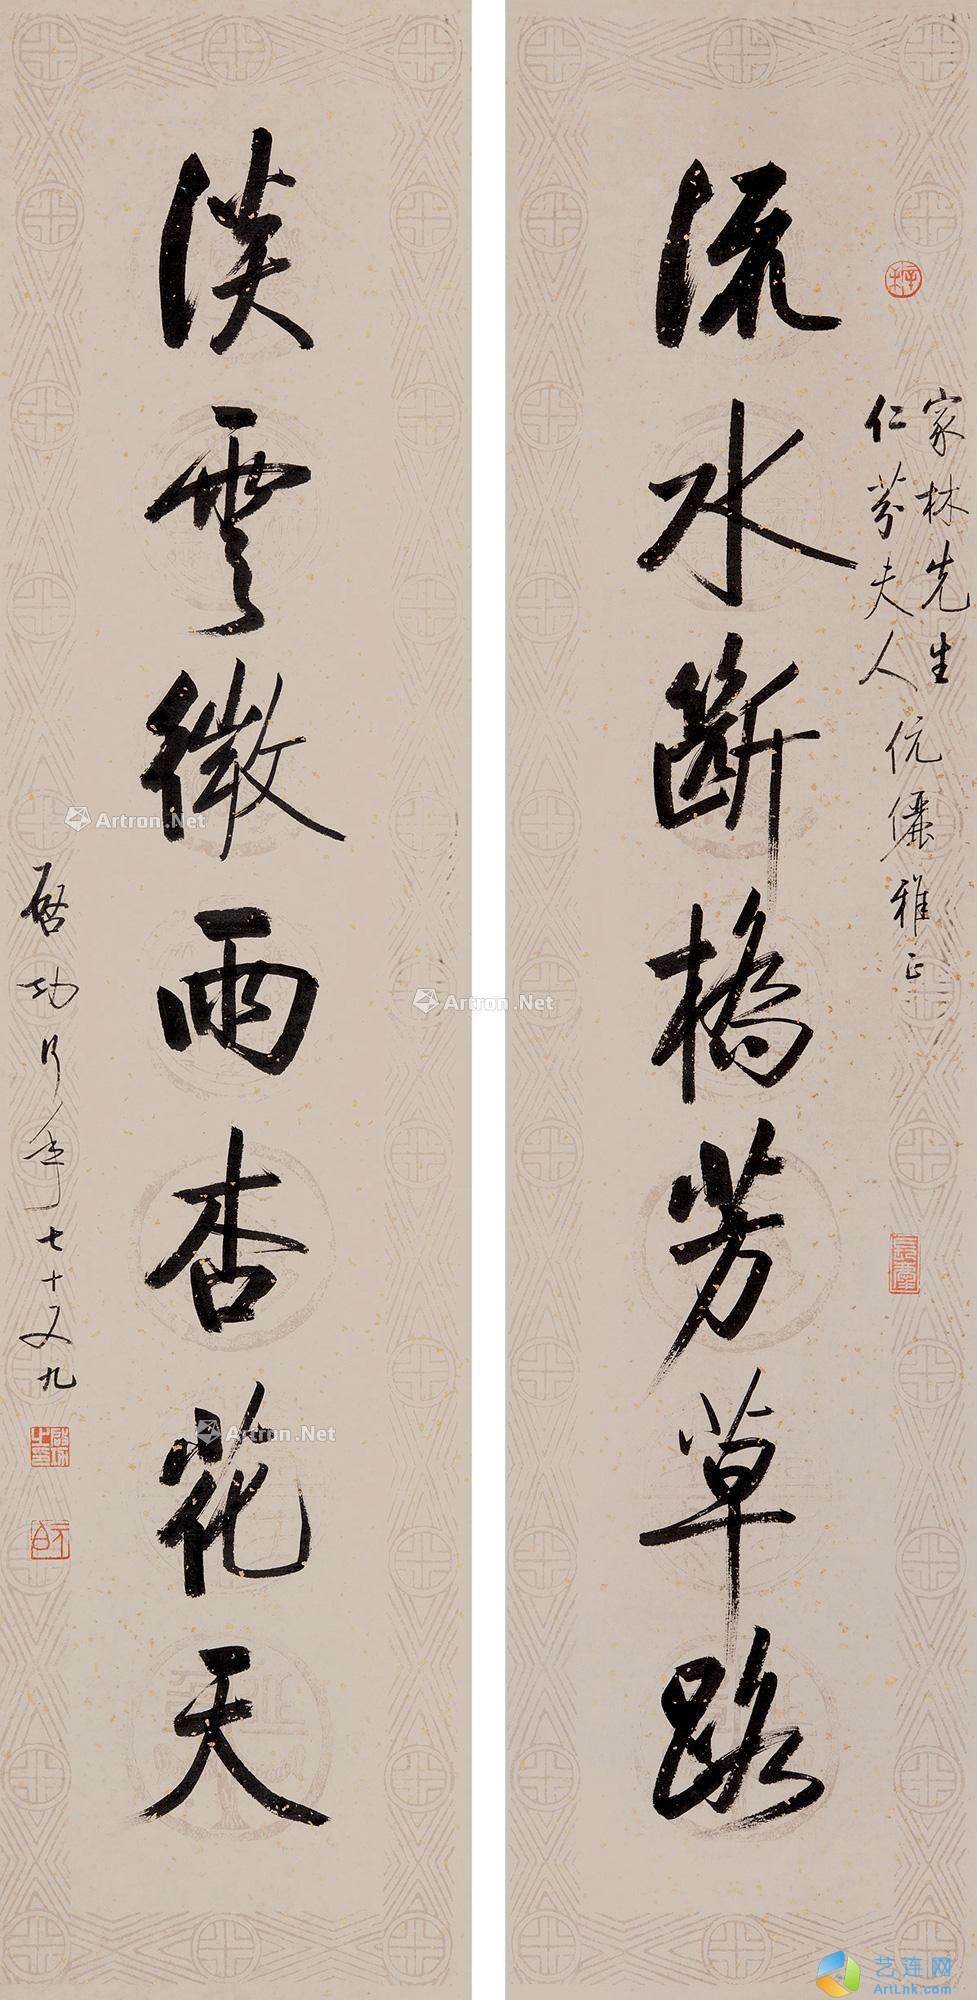 流水断橋芳草路
家林先生
仁芬夫人
伉儷雅正
淡雲微雨杏花天
啓功行年七十又九
啟功之印
元白
Artron.Net
Artron.Net
Artron.Net
艺连网
ArtLnk.com